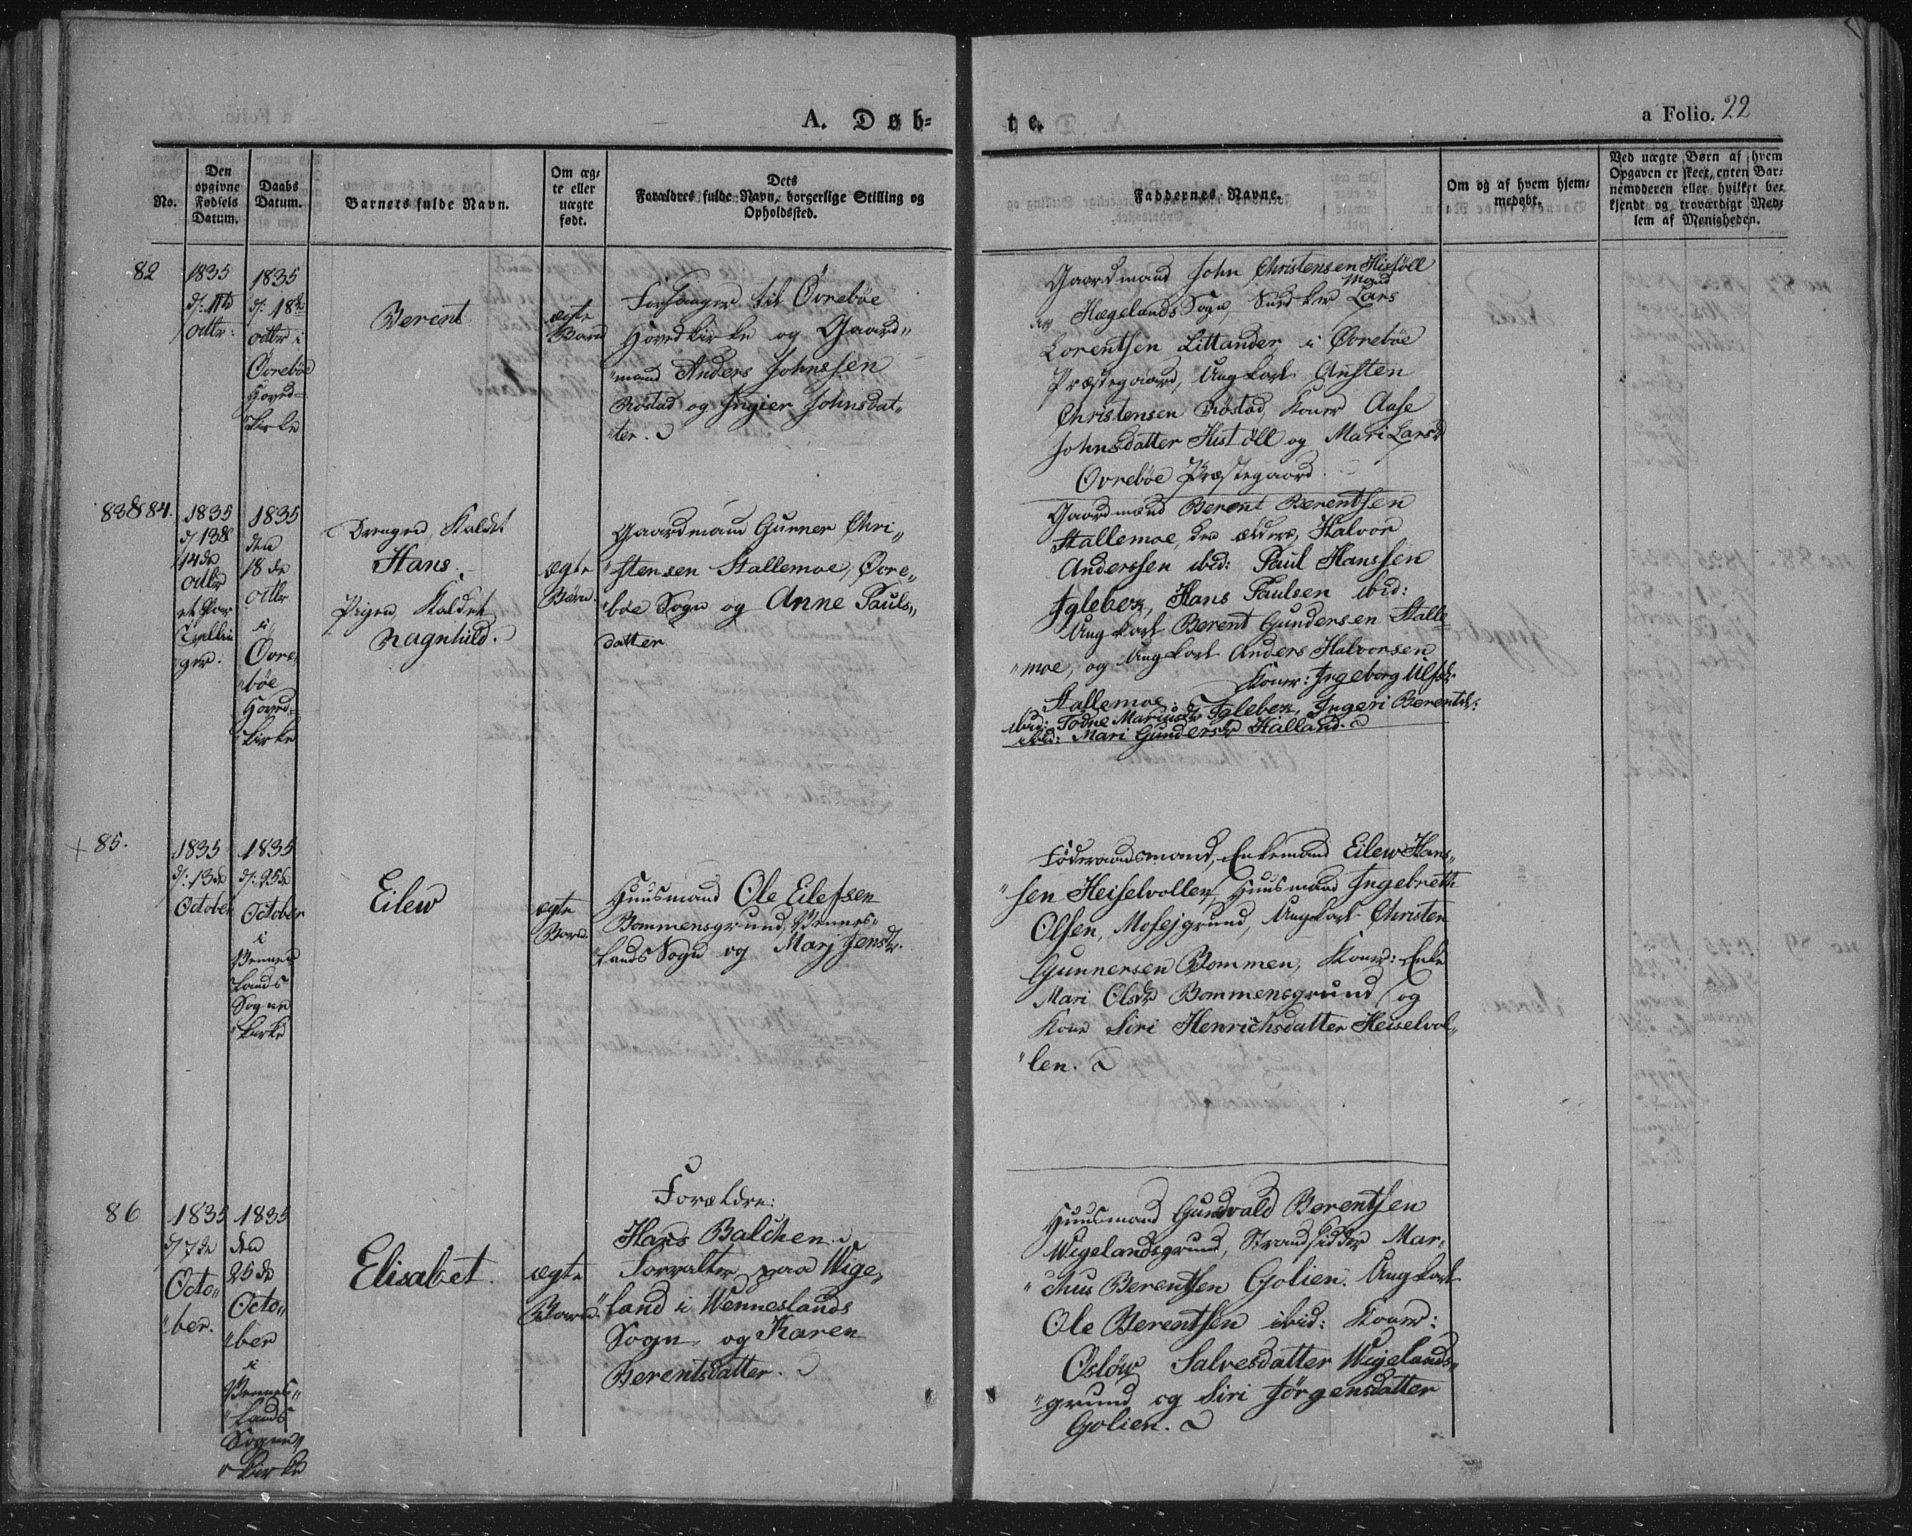 A. Døb-
te.
a Folio. 22
No.
Den
opgivne
Fødsels
Datum.
Daabs
Datum.
Barnets fulde Navn.
Om æg-
te eller
uægte
født.
Dets
Forældres fulde Navn, borgerlige Stilling og
Opholdssted.
Faddernes Navne.
Om og af hvem hjem-
medøbt.
Ved uægte Børn af hvem
Opgaven er skeet, enten Bar-
nemoderen eller hvilket be-
kjendt og troværdigt Med-
lem af Menigheden.
82
1835
d: 11te
octbr:
1835
d: 18de
octbr i
Øvrebøe
Hoved-
kirke
Berent
ægte
Barn
Forsanger til Øvrebøe
Hovedkirke og Gaard„
„mand Anders Johnssen
Røstad og Ingier Johnsdat„
„ter.
Gaardmand John Christensen Histøll
Hægelands Sogn, Lars
Lorentsen Littander i Øvrebøe
Præstegaard, Ungkarl Austen
Christensen Røstad, Koner Aase
Johnsdatter Histöll og Mari Larsdr
Ovrebøe Præstegaard.
83 & 84.
1835
d 13 &
14de
octbr
et Par
Tvillin
ger.
1835
den
18de
octbr
i
Øvre„
bøe
Hoved-
kirke
Drengen, Kaldet
Hans.
Pigen Kaldet
Ragnhild.
ægte
Børn
Gaardmand Gunner Chri„
„stensen Stallemoe, Øvre„
„bøe Sogn og Anne Pauls„
datter
Gaardmænd Berent Berentsen
Stallemoe, den ældere, Halvor
Anderssen ibid: Paul Hanssen
Iglebek, Hans Paulsen ibid:
Ungkarl Berent Gundersen Stalle
„moe, og Ungkarl Anders Halvorsen
Stallemoe. Koner: Ingeborg Ulfsdr
ibid: Todne Mariusdr Iglebek, Ingeri Berentdr:
ibid: Mari Gundersdr Halland.
+ 85.
1835
d: 13de
October
1835
d: 25de
October
i
Vennes
lands
Sogne
„kirke
Eilew
ægte
Barn.
Huusmand Ole Eilefsen
Bommensgrund, Vennes„
„lands Sogn og Marj Jensdr.
Föderaadsmand, Enkemand Eilew Hans„
„sen Heiselvollen, Huusmand Ingebreth
Olsen, Mosejgrund, Ungkarl Christen
Gunnersen Bommen, Koner: Enke
Mari Olsdr Bommensgrund og
Kone Siri Henrichsdatter Heiselvol„
„len.
86
1835
d 7de
Octo„
„ber.
1835
den
25de
Octo„
„ber
i
Vennes„
„lands
Sogne„
„kirke
Elisabet.
ægte
Barn.
Forældre:
Hans Balchen
Forvalter paa Wige„
„land i Wenneslands
Sogn og Karen
Berentsdatter.
Huusmand Gundvald Berentsen
Wigelandsgrund, Strandsidder Mar„
„chus Berentsen Golien. Ungkarl
Ole Berentsen ibid: Koner:
Oslöw Salvesdatter Wigelands„
„grund og Siri Jörgensdatter
Golien.